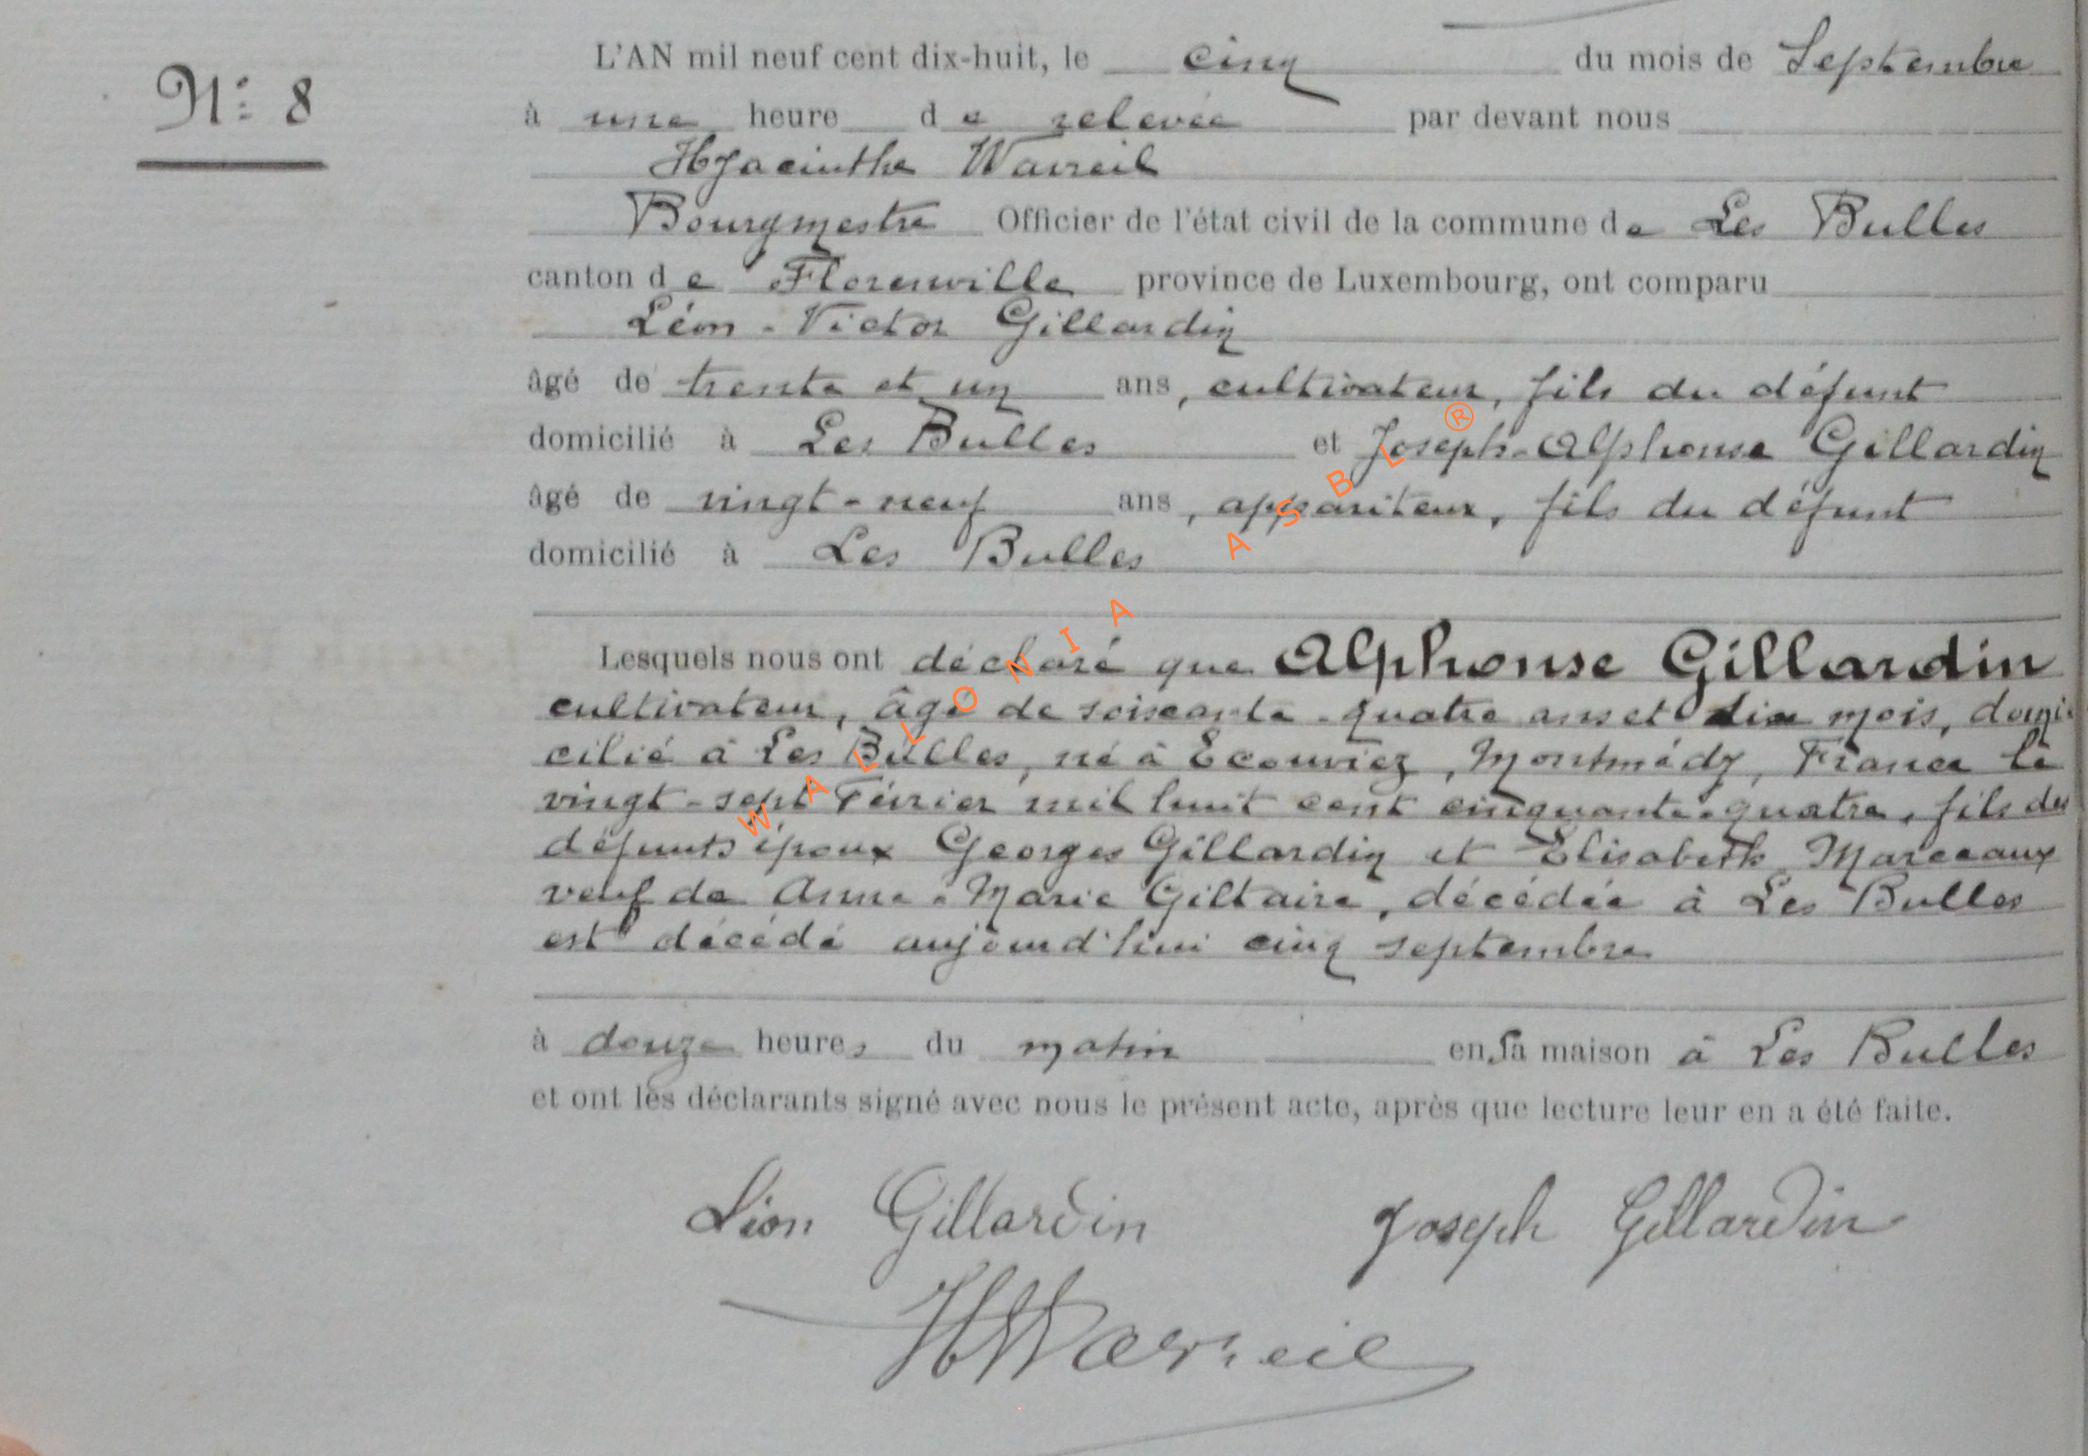 N° 8
L'AN mil neuf cent dix-huit, le cinq du mois de Septembre
à une heure de relevée par devant nous
Hyacinthe Wavreil
Bourgmestre Officier de l'état civil de la commune de Les Bulles
canton de Florenville province de Luxembourg, ont comparu
Léon-Victor Gillardin
âgé de trente et un ans, cultivateur, fils du défunt
domicilié à Les Bulles et Joseph-Alphonse Gillardin
âgé de vingt-neuf ans, appariteur, fils du défunt
domicilié à Les Bulles
Lesquels nous ont déclaré que Alphonse Gillardin
cultivateur, âgé de soixante-quatre ans et dix mois, domi-
cilié à Les Bulles, né à Ecouviez, Montmédy, France le
vingt-sept Février mil huit cent cinquante-quatre, fils des
défunts époux Georges Gillardin et Elisabeth Marceaux
veuf de Anne-Marie Giltaire, décédée à Les Bulles
est décédé aujourd'hui cinq septembre
à douze heures du matin en sa maison à Les Bulles
et ont les déclarants signé avec nous le présent acte, après que lecture leur en a été faite.
Léon Gillardin Joseph Gillardin
H Wavreil
WALLONIA ASBL ®